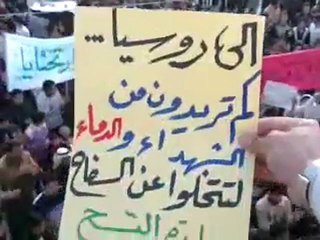 الى روسيا...
كم تريدون من
الشهداء والدماء
لتتخلوا عن السفاح